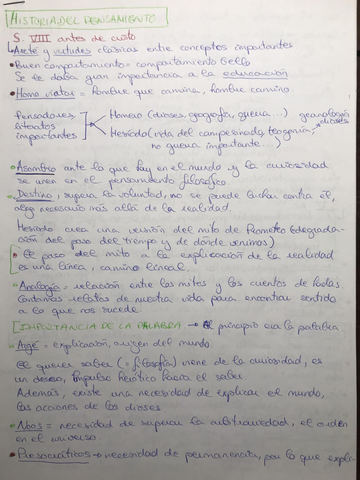 HISTORIA DEL PENSAMIENTO
S. VIII antes de cristo
↳ Areté y virtudes clásicas entre conceptos importantes
• Buen comportamiento = comportamiento bello
Se le daba gran importancia a la educación
• Homo viator = hombre que camina, hombre camino
Pensadores literatos importantes
Homero (dioses, geografía, guerra...) genealogía dioses
Hesíodo (vida del campesinado, teogonía, no guerra importante...)
• Asombro ante lo que hay en el mundo y la curiosidad
se unen en el pensamiento filosófico
• Destino, supera la voluntad, no se puede luchar contra él,
algo necesario más allá de la realidad.
Hesíodo crea una versión del mito de Prometeo (degrada-
ación del paso del tiempo y de dónde venimos)
• El paso del mito a la explicación de la realidad
es una línea, camino lineal.
• Analogía = relación entre los mitos y los cuentos de hadas.
Contamos relatos de nuestra vida para encontrar sentido
a lo que nos sucede
[IMPORTANCIA DE LA PALABRA → El principio era la palabra
• Arjé = explicación, origen del mundo
El querer saber (= filosofía) viene de la curiosidad, es
un deseo, impulso heroico hacia el saber
Además, existe una necesidad de explicar el mundo,
las acciones de los dioses
• Nous = necesidad de superar la arbitrariedad, el orden
en el universo
• Presocráticos → necesidad de permanencia, por lo que expli-